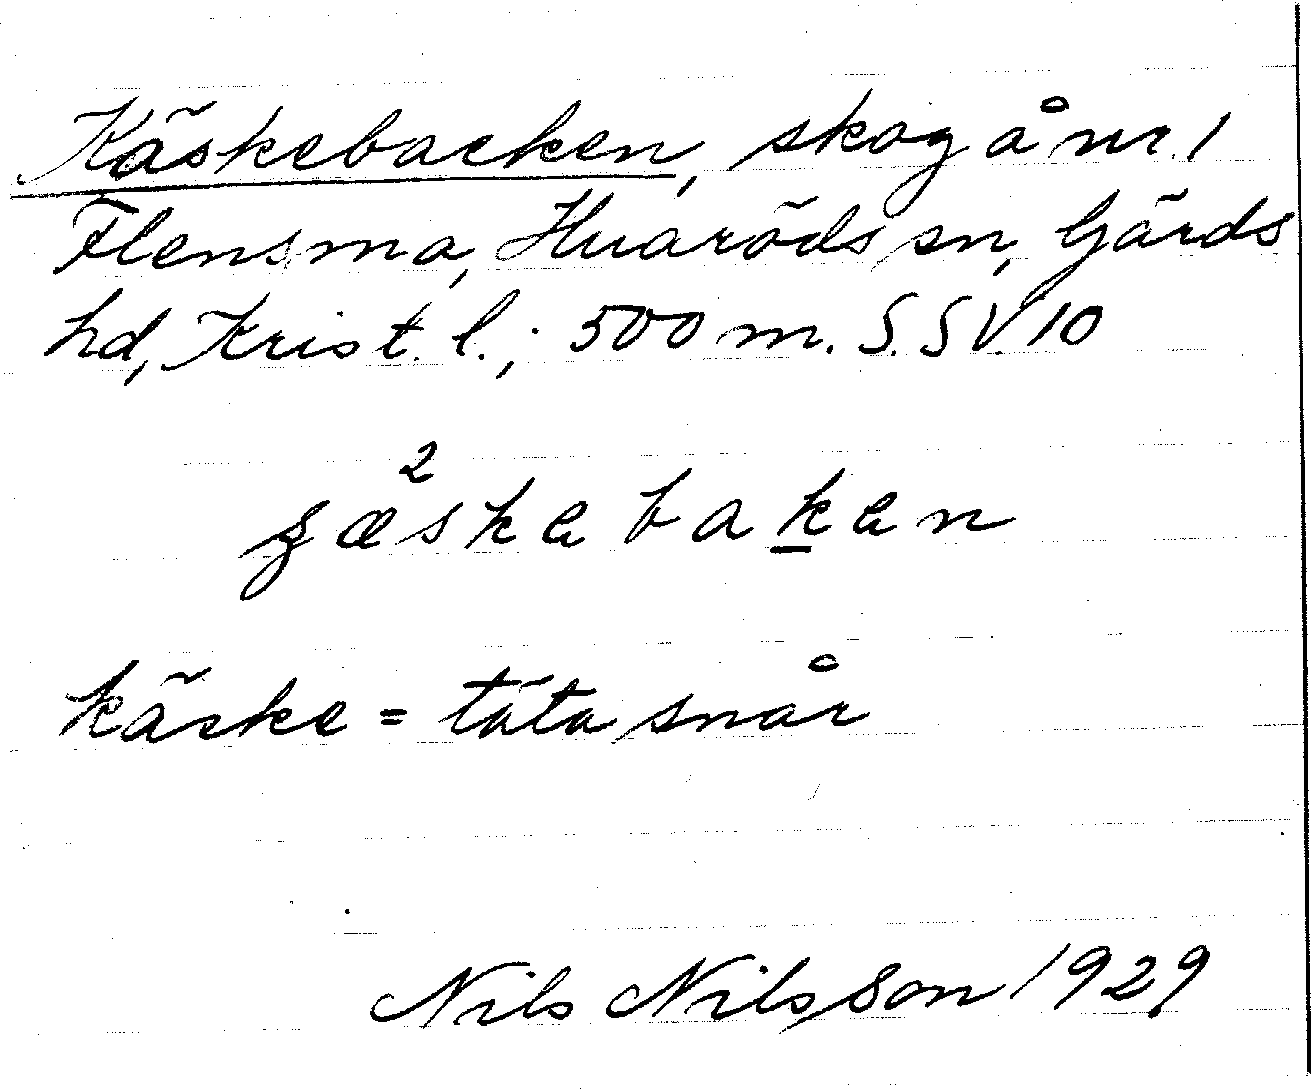 Käskebacken, skog å nr. 1
Flensma, Huaröds sn, Gärds
hd, Krist. l.; 500 m. S. SV. 10
2
käske = täta snår
Nils Nilsson 1929